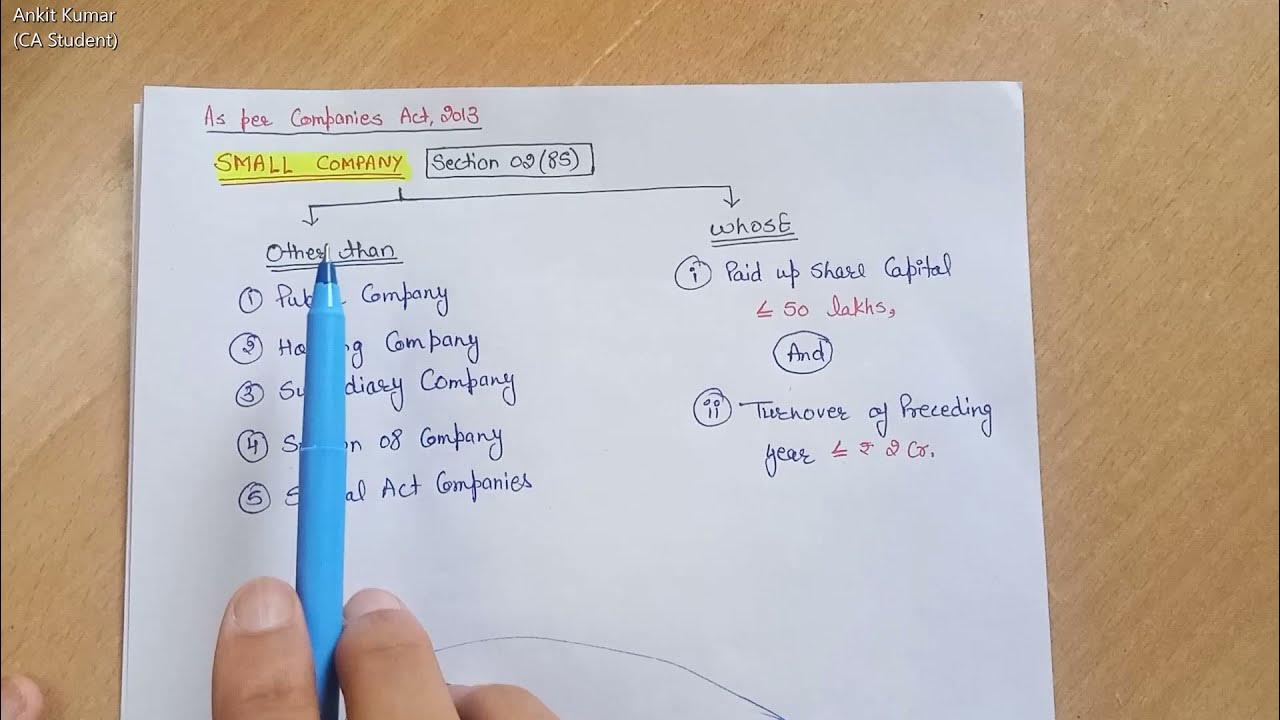 Ankit Kumar
(CA Student)
As per Companies Act, 2013
SMALL COMPANY Section 02(85)
Other than
① Company
② Company
③ Company
④ 08 Company
⑤ Act Companies
whosE
(i) Paid up Share Capital
≤ 50 lakhs,
And
(ii) Turnover of Preceding
year ≤ ₹ 2 Cr.